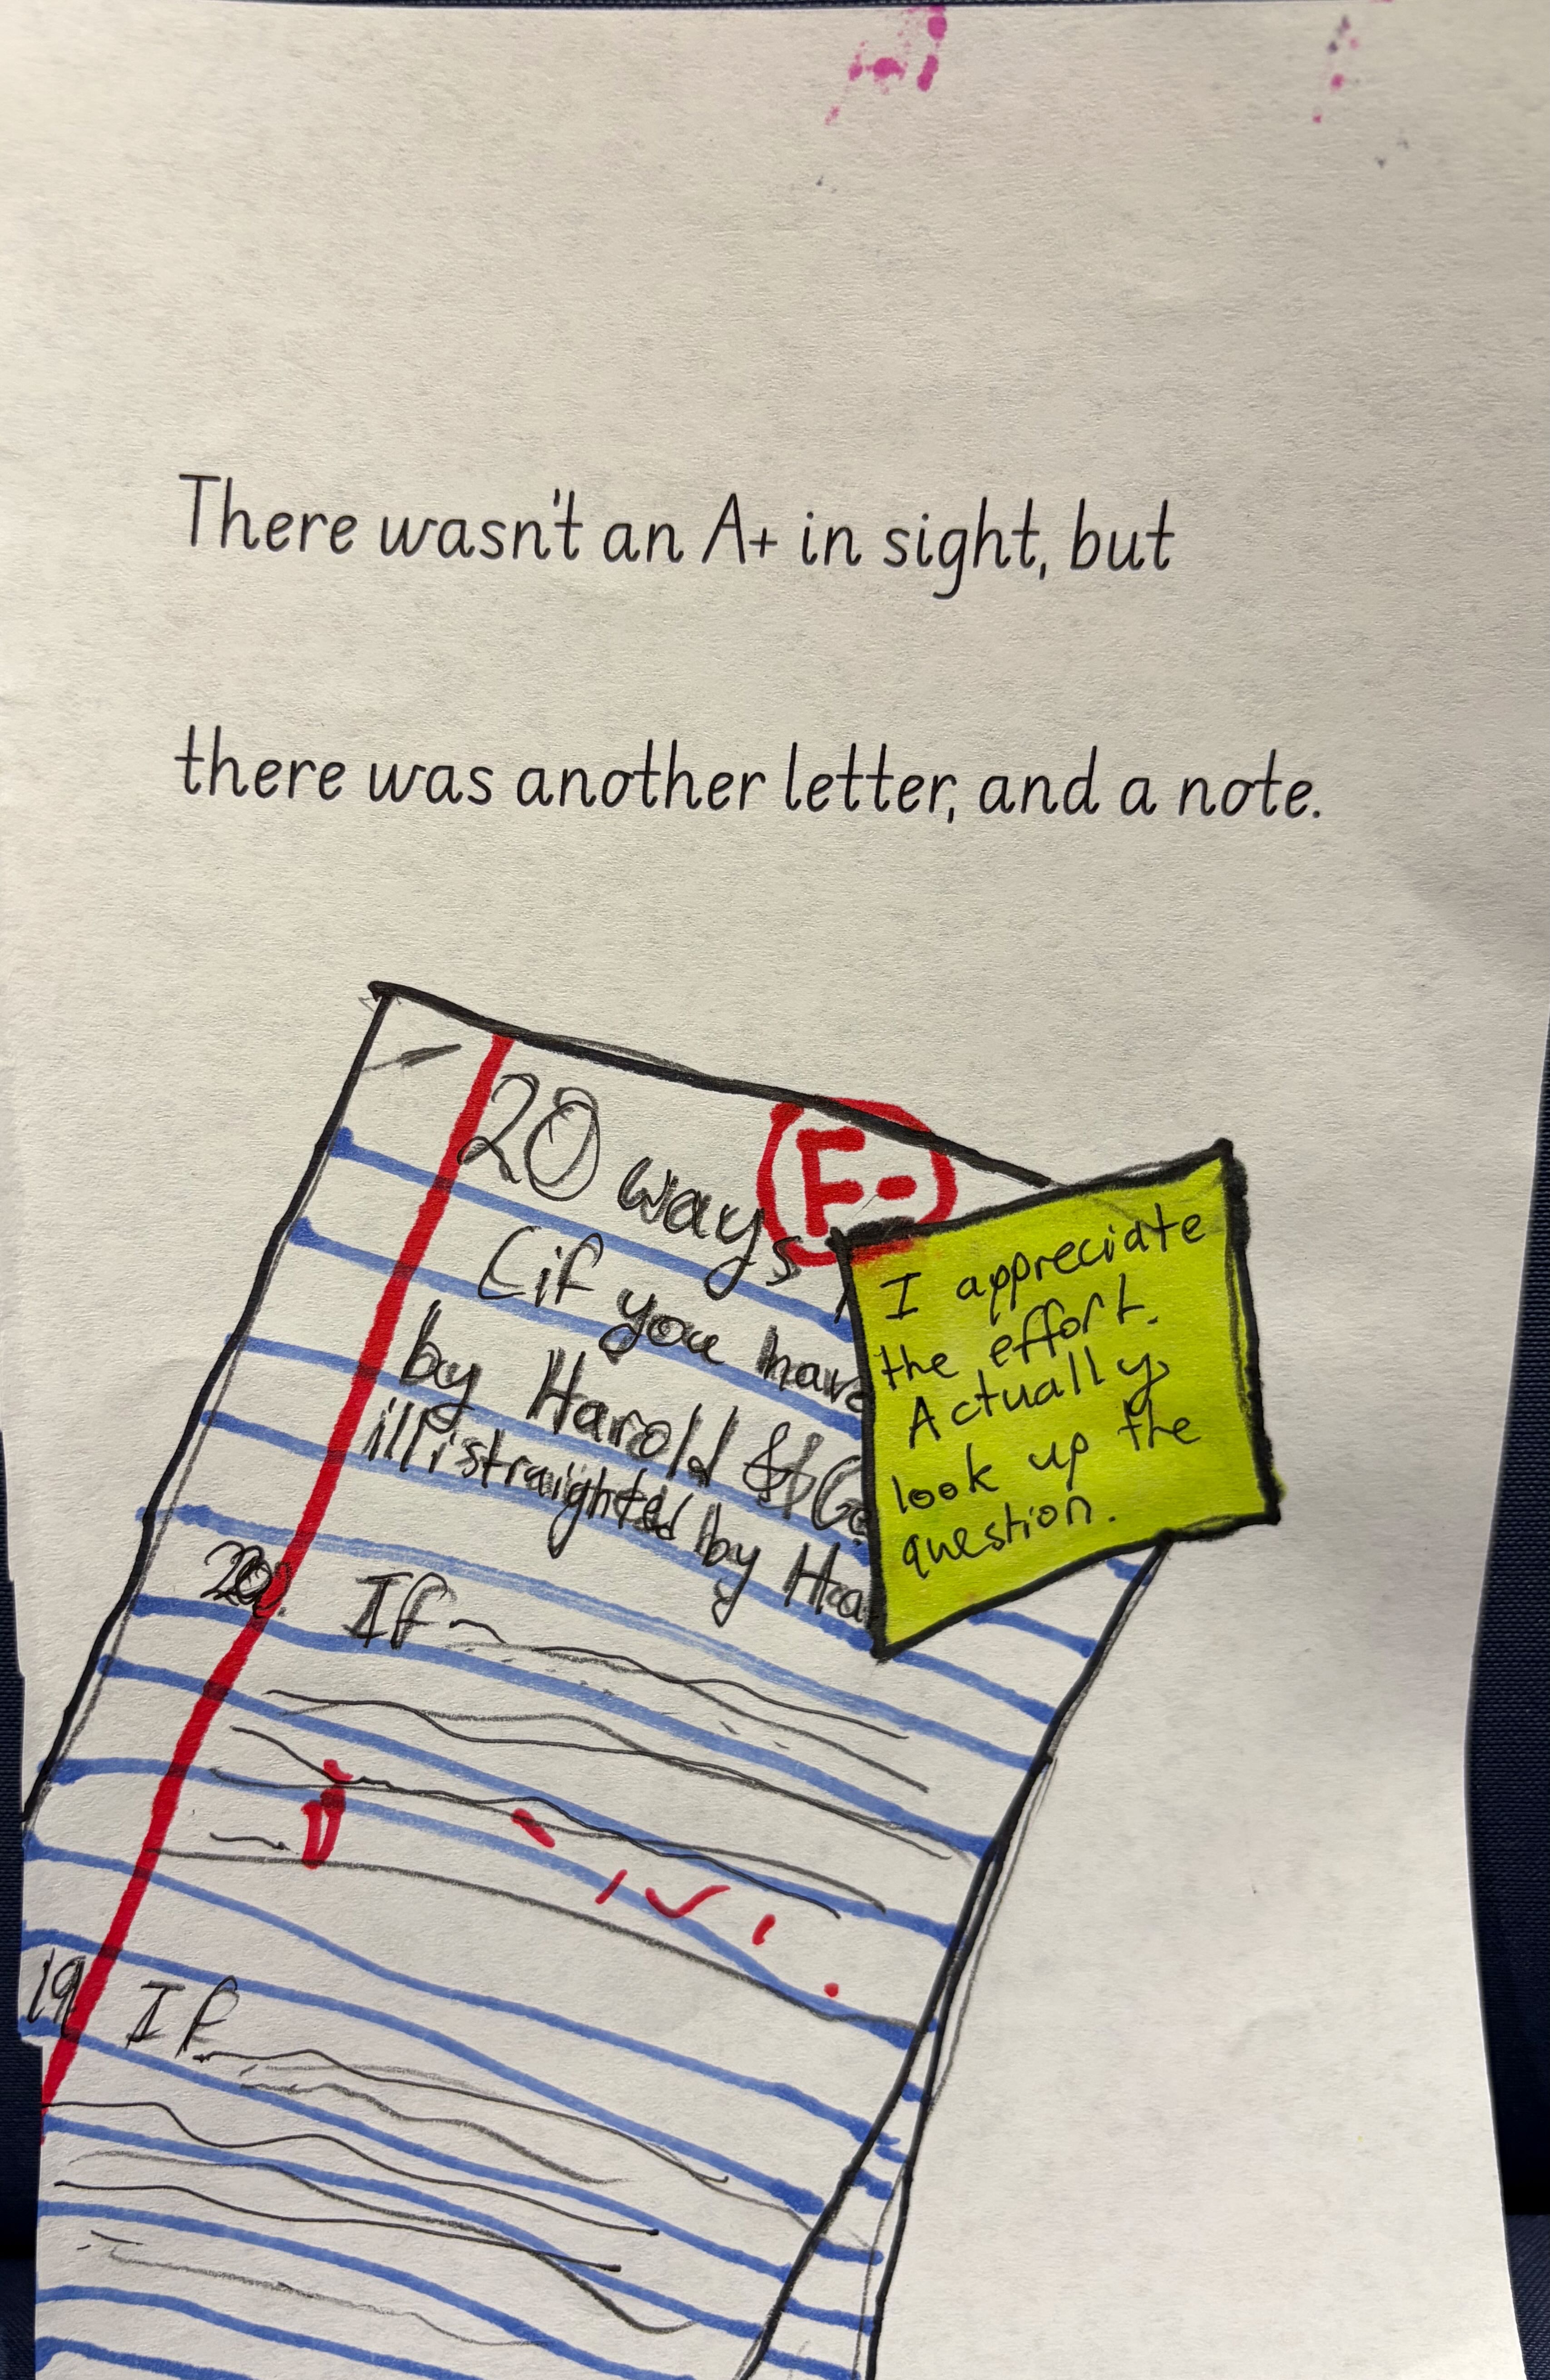 There wasn't an A+ in sight, but
there was another letter, and a note.
20 ways
F-
(if you have
by Harold &
illistraighted by
I appreciate
the effort.
Actually,
look up the
question.
20. If
19 If